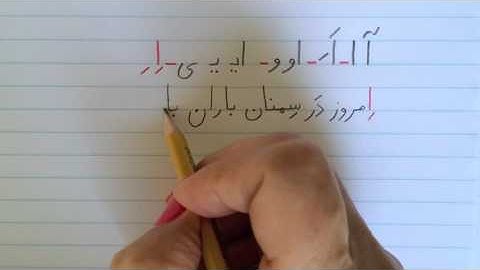 آ ا ـ اَ ـَ ـ او و ـ ایـ یـ ی ـ اِ ـِ
اِمروز دَر سِمنان باران با